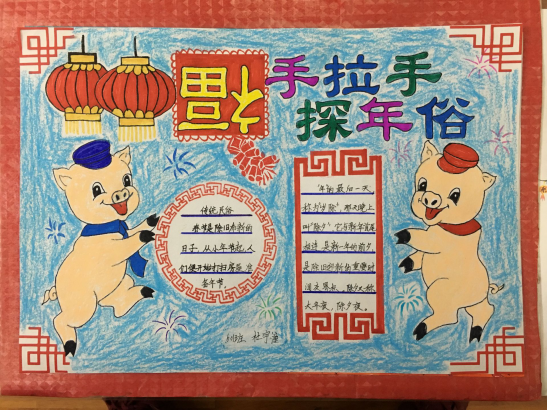 福
手拉手
探年俗
传统民俗
春节是除旧布新的
日子，从小年节起，人
们便开始打扫房屋 准
备年节。
年的最后一天
称为"岁除"，那天晚上
叫"除夕"。它与新年首尾
相连，是新一年的前夕，
是除旧迎新的重要时
大年夜，除夕夜。